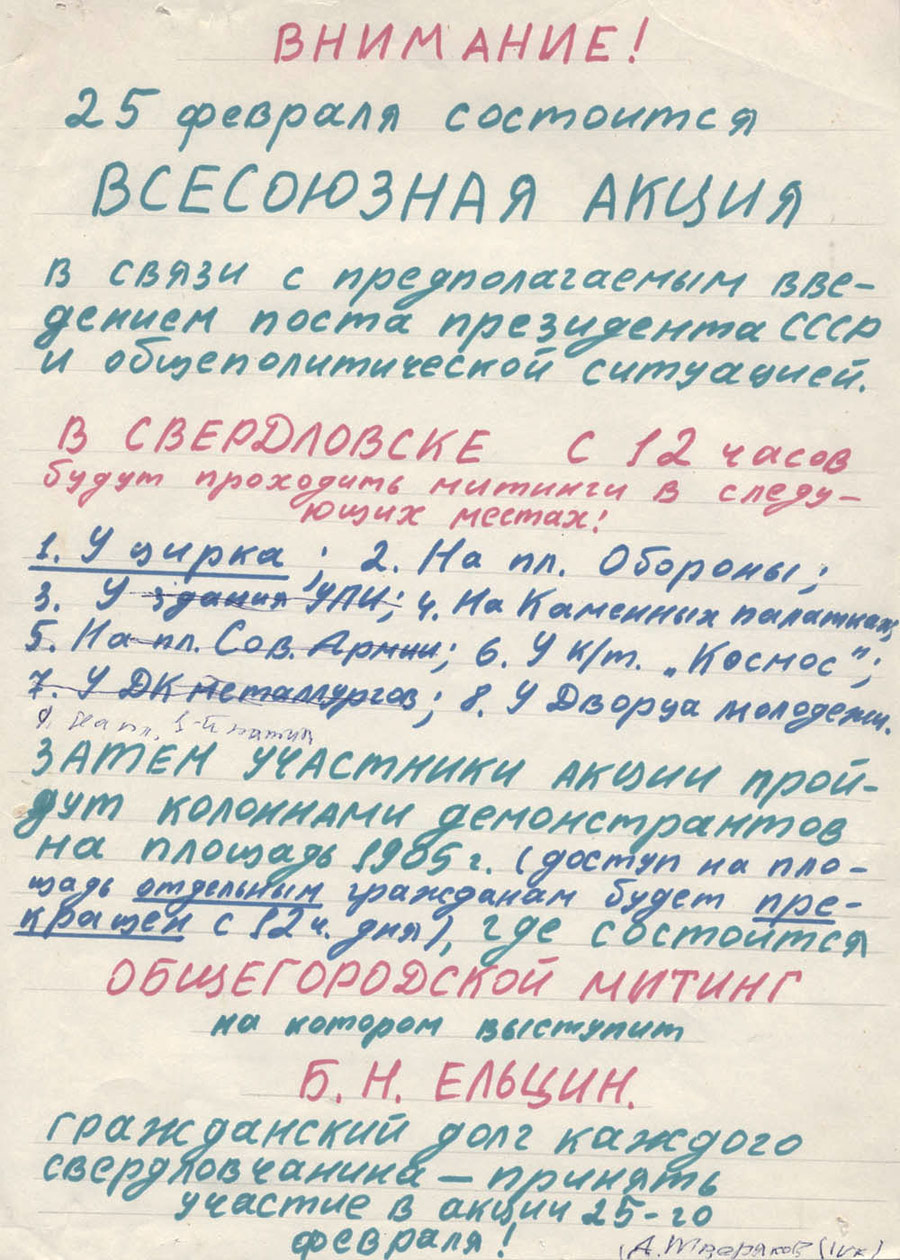 ВНИМАНИЕ!
25 февраля состоится
ВСЕСОЮЗНАЯ АКЦИЯ
в связи с предполагаемым вве-
дением поста президента СССР
и общеполитической ситуацией.
В СВЕРДЛОВСКЕ С 12 часов
будут проходить митинги в следу-
ющих местах:
1. У цирка; 2. На пл. Обороны;
3. У здания УПИ; 4. На Каменных палатках;
5. На пл. Сов. Армии; 6. У к/т. „Космос";
7. У ДК металлургов; 8. У Дворца молодежи.
9. На пл. 1-й
ЗАТЕМ УЧАСТНИКИ АКЦИИ ПРОЙ-
дут колоннами демонстрантов
на площадь 1905 г. (доступ на пло-
щадь отдельным гражданам будет пре-
кращен с 12 ч. дня), где состоится
ОБЩЕГОРОДСКОЙ МИТИНГ
на котором выступит
Б. Н. ЕЛЬЦИН.
гражданский долг каждого
свердловчанина — принять
участие в акции 25-го
февраля!